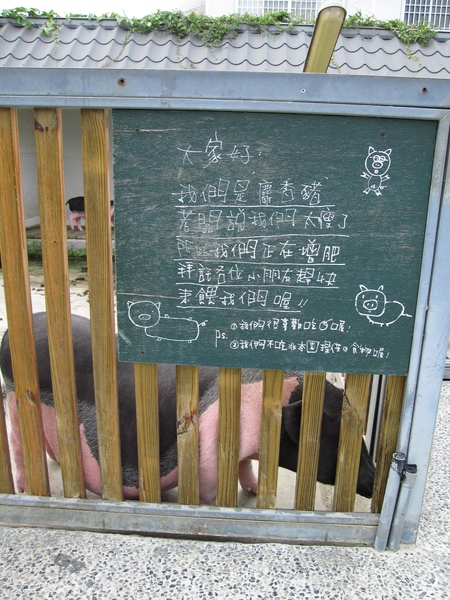 大家好.
我們是麝香豬
老闆說我們太瘦了
所以我們正在增肥
拜託各位小朋友趕快
來餵我們喔!!
ps. ①我們很喜歡吃の喔!
②我們不吃非本園提供の食物喔!